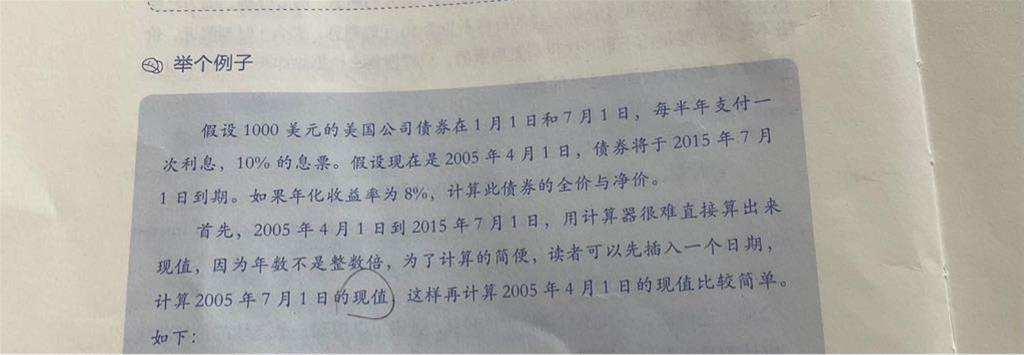 举个例子
假设 1000 美元的美国公司债券在 1 月 1 日和 7 月 1 日，每半年支付一
次利息，10% 的息票。假设现在是 2005 年 4 月 1 日，债券将于 2015 年 7 月
1 日到期。如果年化收益率为 8%，计算此债券的全价与净价。
首先，2005 年 4 月 1 日到 2015 年 7 月 1 日，用计算器很难直接算出来
现值，因为年数不是整数倍，为了计算的简便，读者可以先插入一个日期，
计算 2005 年 7 月 1 日的现值，这样再计算 2005 年 4 月 1 日的现值比较简单。
如下：